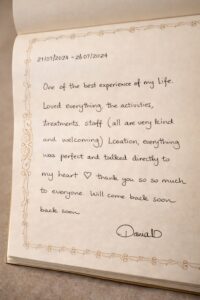 21/07/2024 - 28/07/2024
One of the best experience of my life.
Loved everything, the activities,
treatments, staff (all are very kind
and welcoming) Location, everything
was perfect and talked directly to
my heart ♡ thank you so so much
to everyone. Will come back soon
back soon